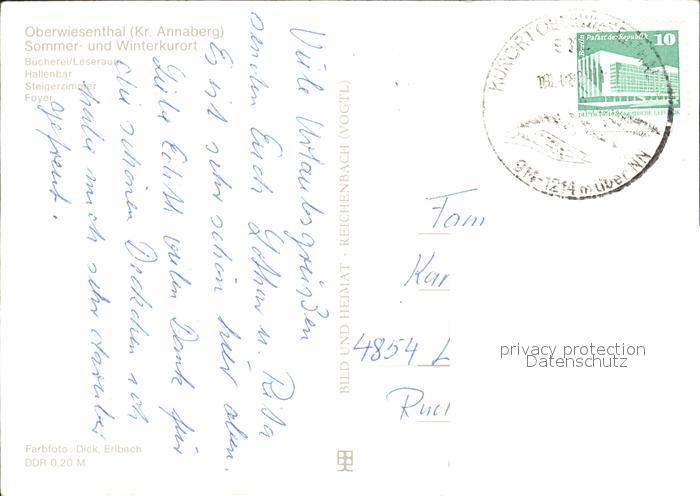 Oberwiesenthal (Kr. Annaberg)
Sommer- und Winterkurort
Bücherei/Leseraum
Hallenbar
Steigerzimmer
Foyer
Viele Urlaubsgrüßen
senden Euch Lothar u. Rita
Es ist sehr schön hier oben.
Liebe Edith vielen Dank für
die schönen Deckchen ich
habe mich sehr darüber
gefreut.
Farbfoto: Dick, Erlbach
DDR 0,20 M
BILD UND HEIMAT · REICHENBACH (VOGTL)
KURORT OBERWIESENTHAL
914-1214 m über NN
Berlin Palast der Republik 10
DEUTSCHE DEMOKRATISCHE REPUBLIK
Fam
Kar
4854 L
privacy protection
Datenschutz